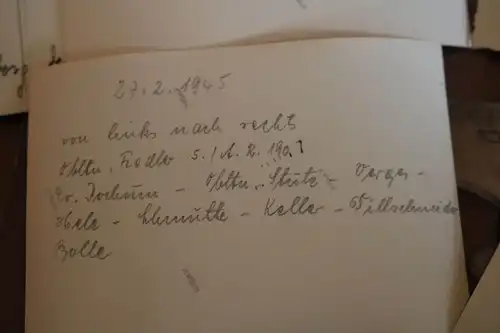 27.2.1945
von links nach rechts
Obltn. Fiedler S./A.R. 190.
Dr. Jochum - Obltn. Stutz - Verges -
Abele - Schmutte - Kalle - Willschneider
Bolle